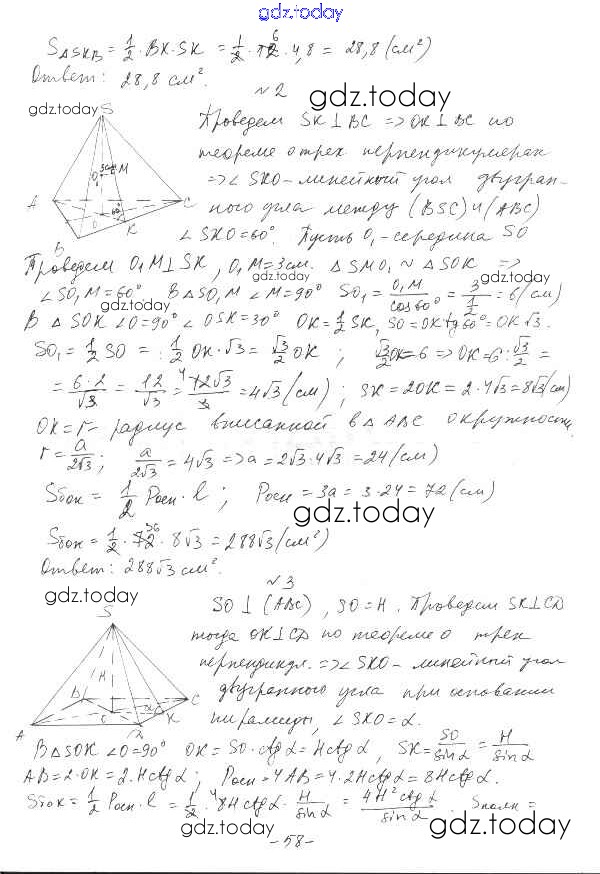 gdz.today
S△SKB = 1/2 · BK · SK = 1/2 · 12 · 4,8 = 28,8 (см²)
6
Ответ: 28,8 см².
№2
gdz.today
gdz.today
Проведем SK⊥BC => OK⊥BC по
теореме о трех перпендикулярах
=> ∠SKO - линейный угол двугран-
ного угла между (BSC) и (ABC)
∠SKO=60°. Пусть O₁-середина SO
S
3см
M
O₁
A
C
O
60°
B
K
Проведем O₁M⊥SK, O₁M=3см. △SMO₁ ~ △SOK =>
gdz.today
gdz.today
∠SO₁M=60° В △SO₁M ∠M=90° SO₁ = O₁M/cos60° = 3/(1/2) = 6 (см)
gdz.today
В △SOK ∠O=90° ∠OSK=30° OK=1/2 SK, SO=OK tg60°=OK√3.
SO₁ = 1/2 SO = 1/2 OK · √3 = √3/2 OK ; √3/2 OK=6 => OK=6:√3/2 =
= 6·2/√3 = 12/√3 = 12√3/3 = 4√3 (см) ; SK = 2OK = 2·4√3=8√3 (см)
4
OK=r - радиус вписанной в △ABC окружности
r = a/2√3 ; a/2√3 = 4√3 => a = 2√3·4√3 = 24 (см)
Sбок = 1/2 Pосн · l ; Pосн = 3a = 3·24 = 72 (см)
gdz.today
36
Sбок = 1/2 · 72 · 8√3 = 288√3 (см²)
Ответ: 288√3 см².
gdz.today
№3
SO⊥(ABC), SO=H. Проведем SK⊥CD
тогда OK⊥CD по теореме о трех
перпендикул. => ∠SKO - линейный угол
двугранного угла при основании
gdz.today
пирамиды, ∠SKO=α.
S
H
B
C
O
α
K
A
В △SOK ∠O=90° OK = SO·ctgα = Hctgα, SK = SO/sinα = H/sinα
AB=2·OK=2·Hctgα ; Pосн = 4AB=4·2Hctgα = 8Hctgα.
Sбок = 1/2 Pосн · l = 1/2 · 8Hctgα · H/sinα = 4H²ctgα/sinα . Sполн =
4
gdz.today
gdz.today
-58-
gdz.today